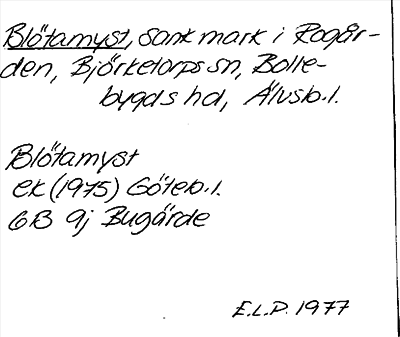 Blötamyst, sank mark i Rogår-
den, Björketorps sn, Bolle-
bygds hd, Älvsb.l.
Blötamyst
ek (1975) Göteb.l.
6B 9j Bugärde
E.L.P. 1977